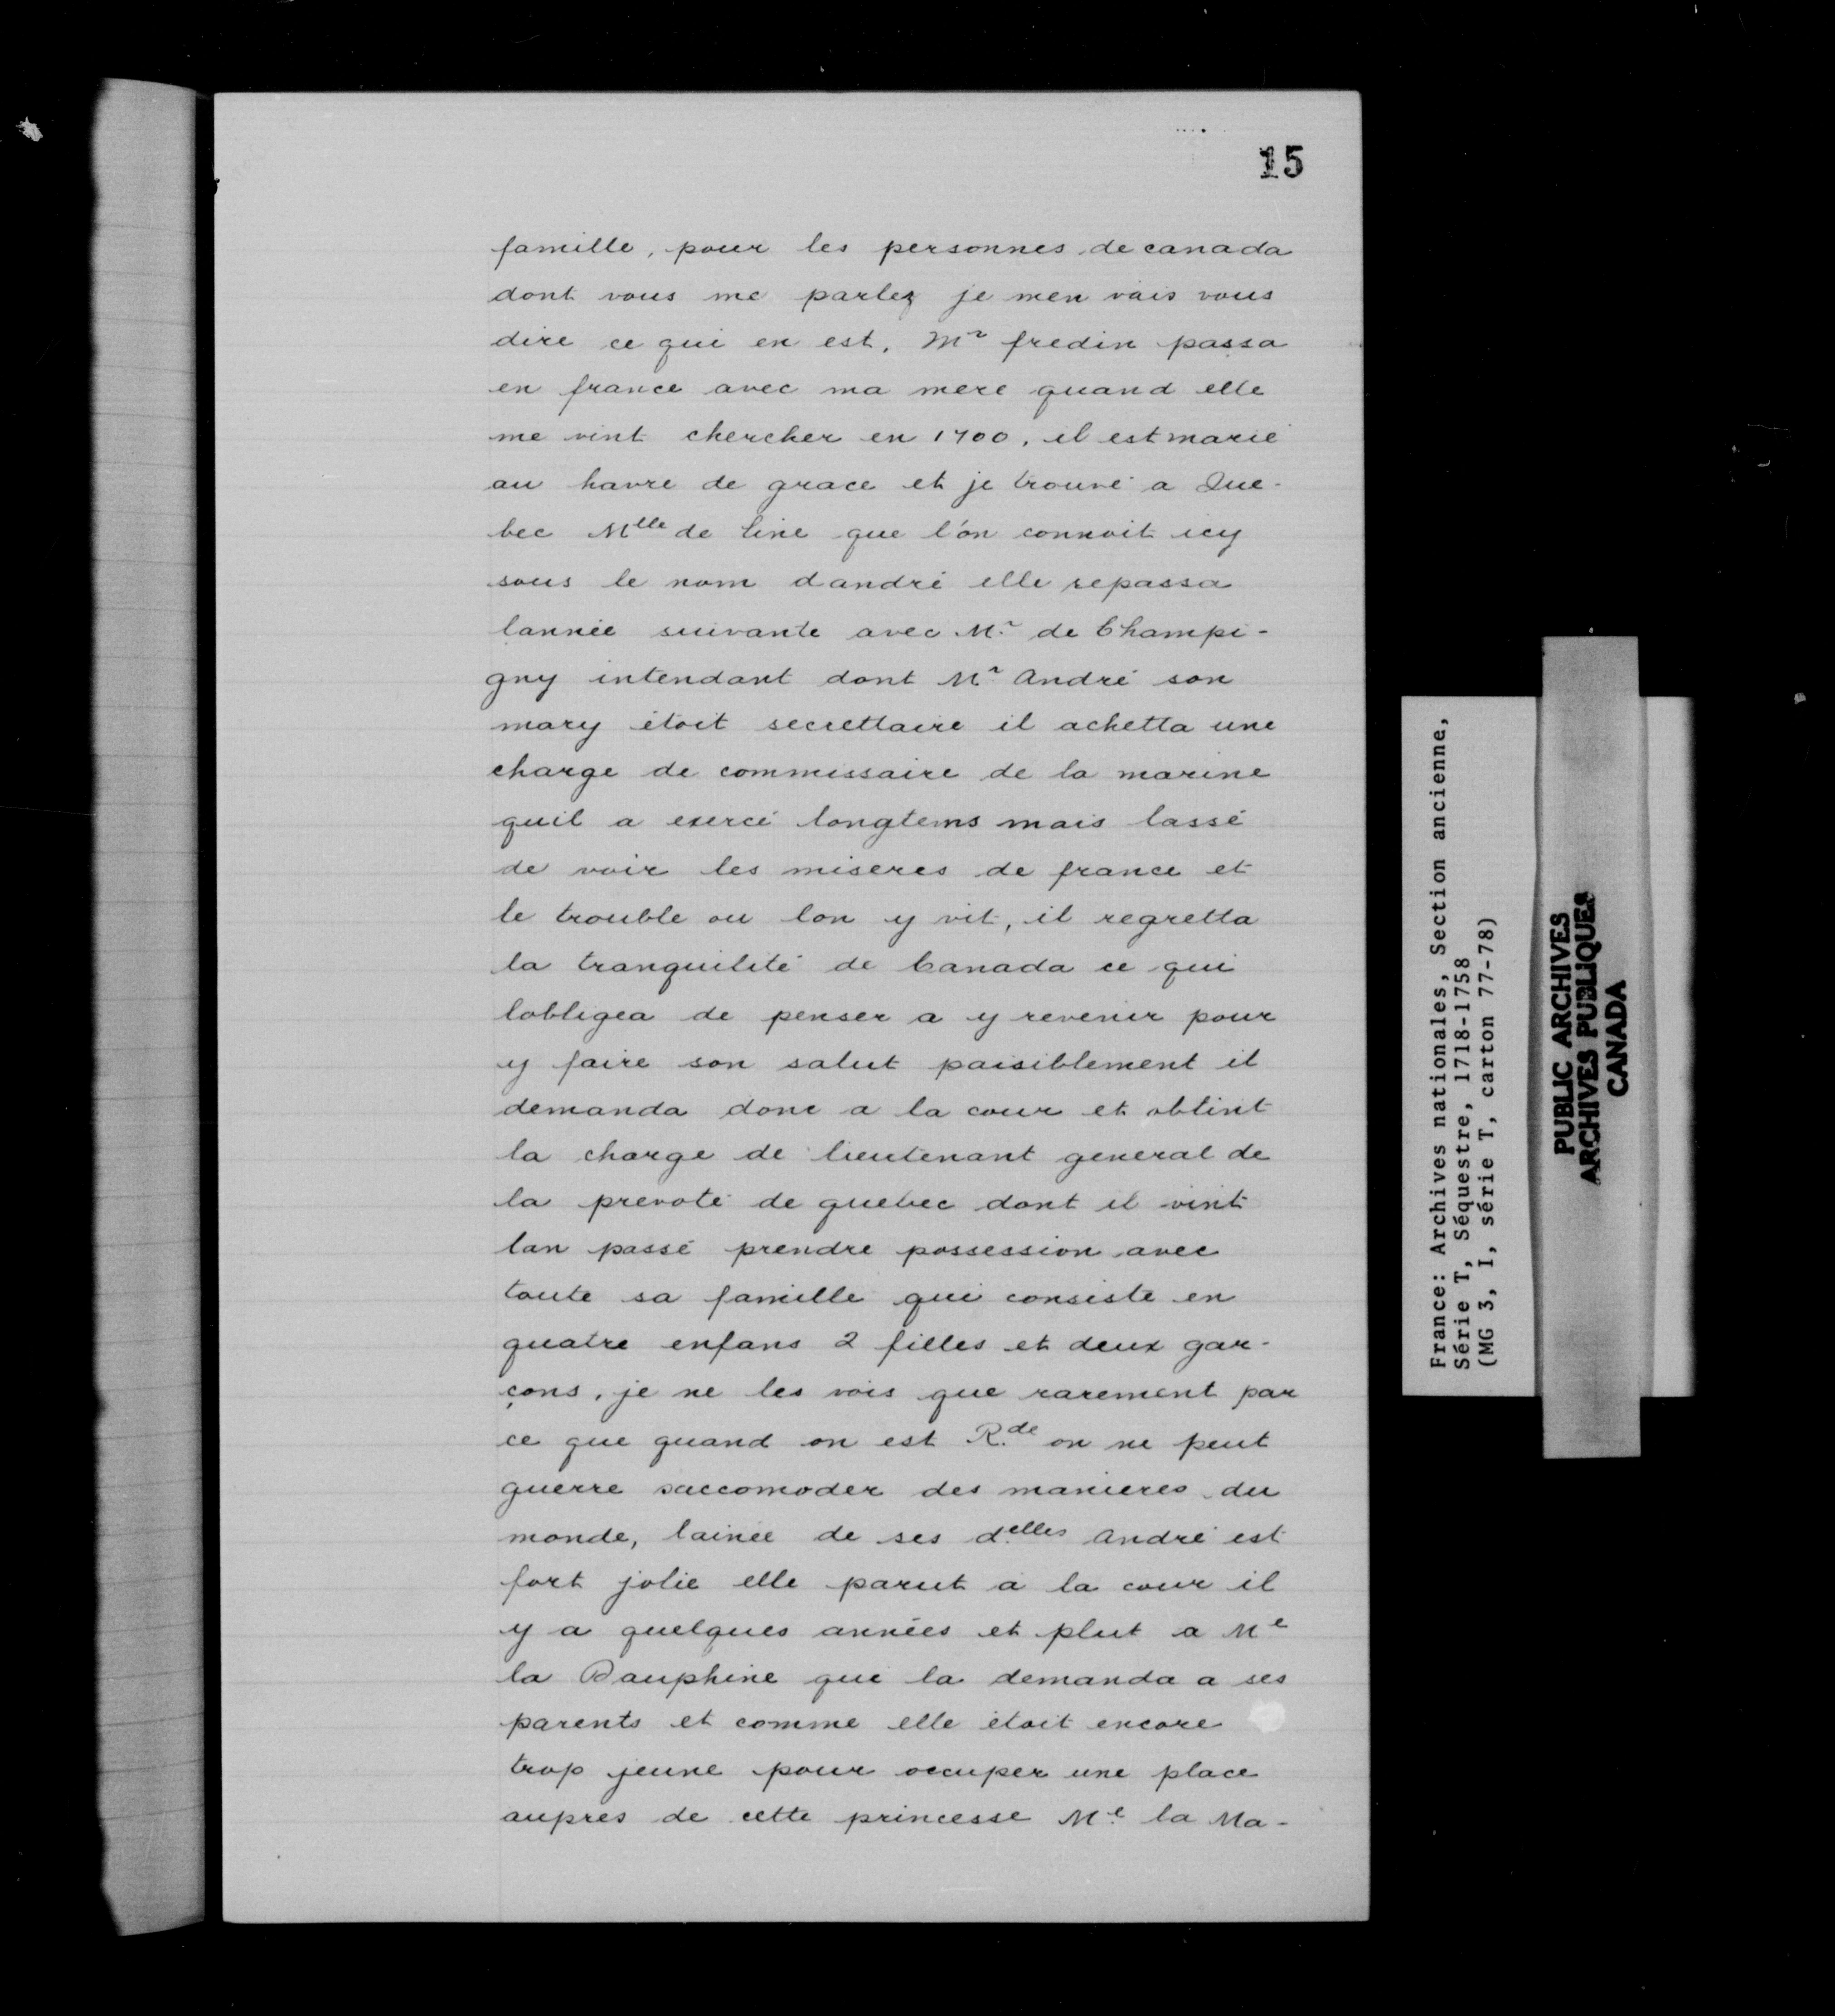 15
famille, pour les personnes de canada
dont vous me parlez je men vais vous
dire ce qui en est, Mr fredin passa
en france avec ma mere quand elle
me vint chercher en 1700, il est marié
au havre de grace et je trouvé a Que-
bec Mlle de Line que l'on connoit icy
sous le nom dandré elle repassa
lannée suivante avec Mr de Champi-
gny intendant dont Mr André son
mary étoit secrettaire il achetta une
charge de commissaire de la marine
quil a exercé longtems mais lassé
de voir les miseres de france et
le trouble ou lon y vit, il regretta
la tranquilité de Canada ce qui
lobligea de penser a y revenir pour
y faire son salut paisiblement il
demanda donc a la cour et obtint
la charge de lieutenant general de
la prevoté de quebec dont il vint
lan passé prendre possession avec
toute sa famille qui consiste en
quatre enfans 2 filles et deux gar-
çons, je ne les vois que rarement par
ce que quand on est R.de on ne peut
guerre saccomoder des manieres du
monde, lainée de ses d.elles André est
fort jolie elle parut a la cour il
y a quelques années et plut a Me
la Dauphine qui la demanda a ses
parents et comme elle étoit encore
trop jeune pour occuper une place
aupres de cette princesse M.e la Ma-
France: Archives nationales, Section ancienne,
Série T, Séquestre, 1718-1758
(MG 3, I, série T, carton 77-78)
PUBLIC ARCHIVES
ARCHIVES PUBLIQUES
CANADA